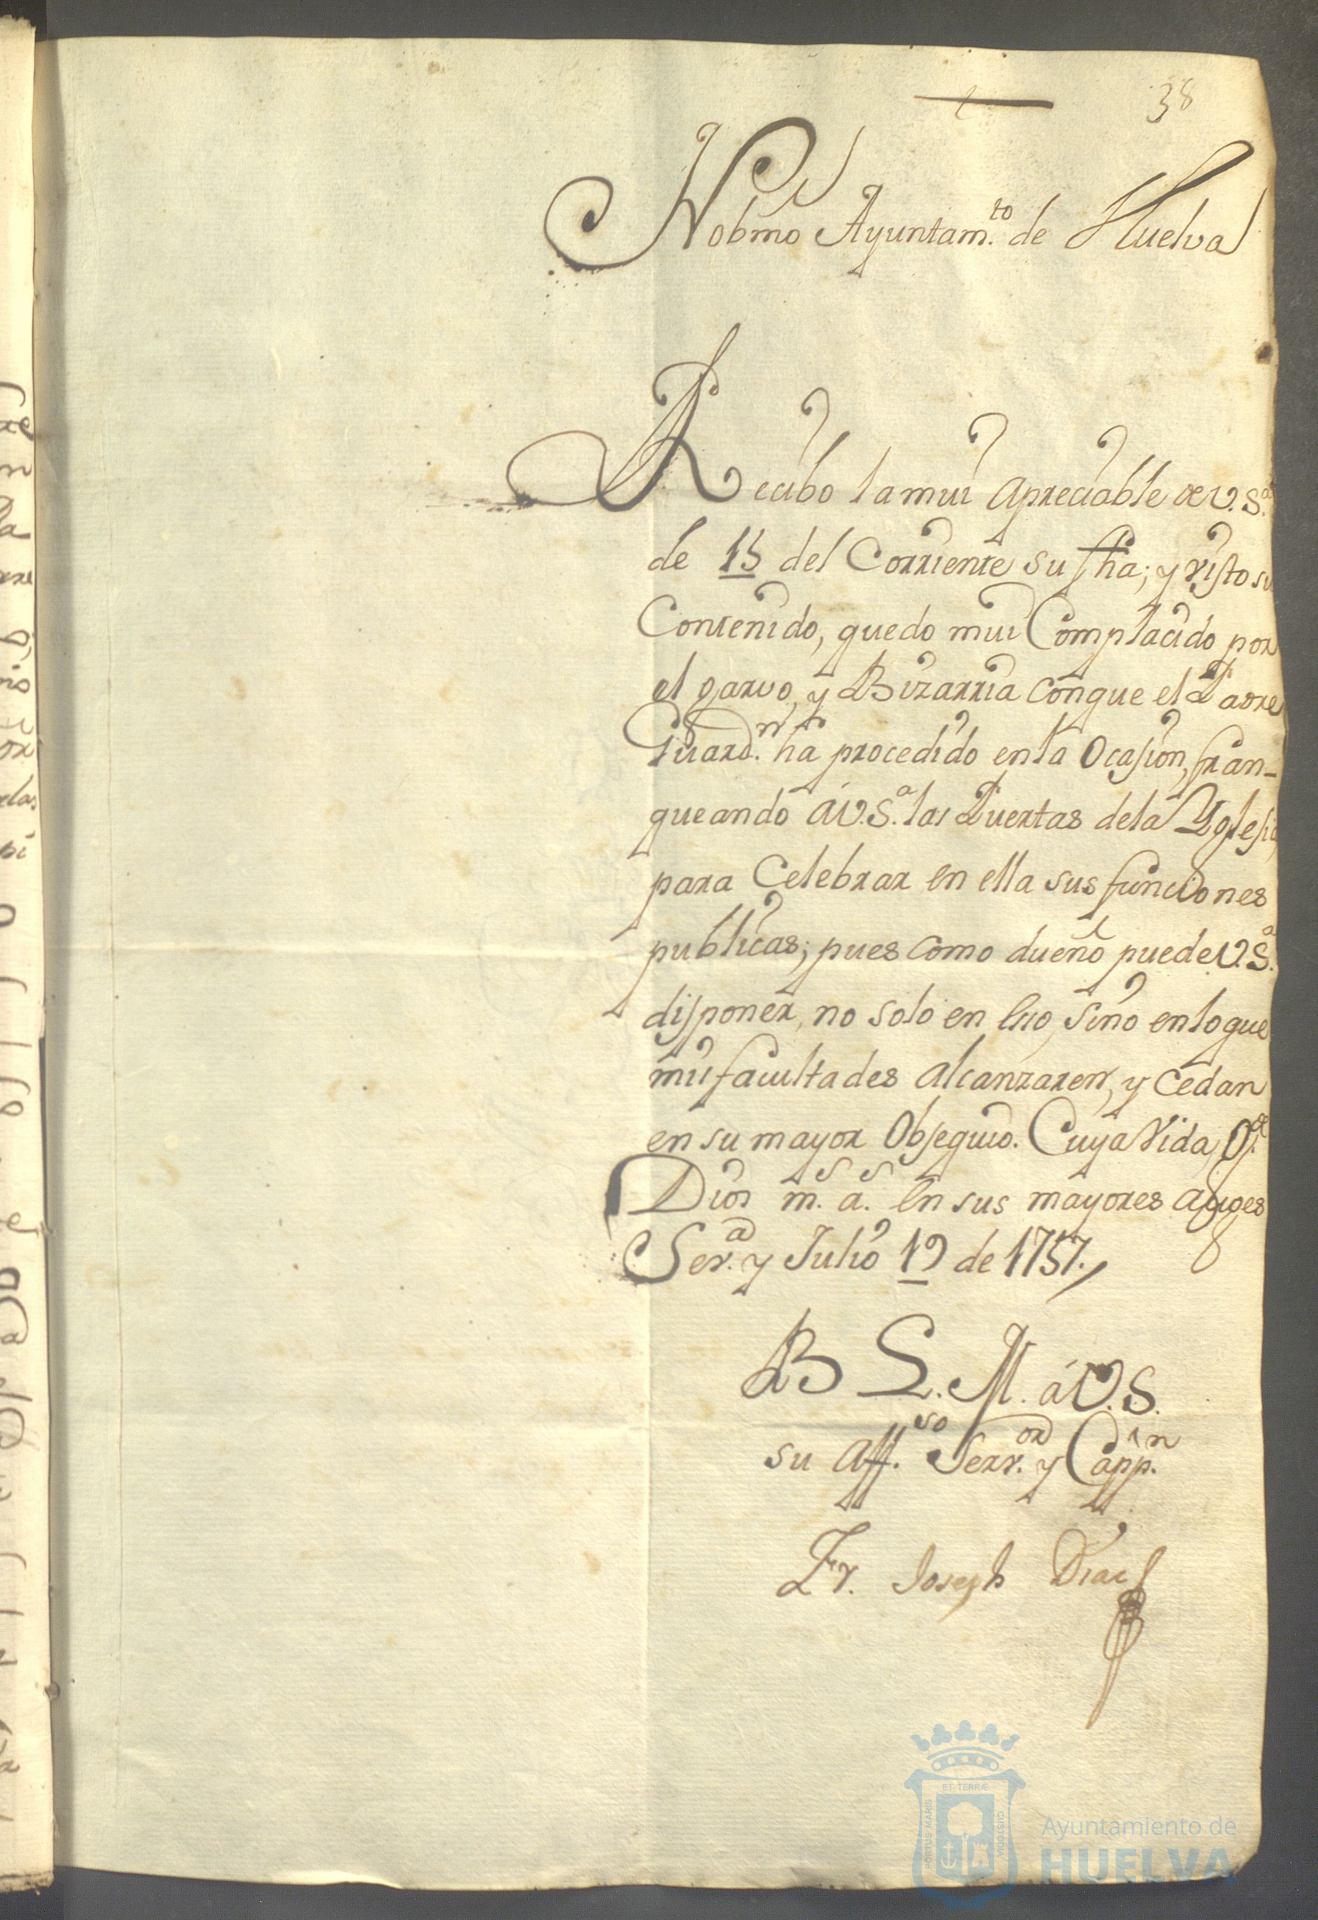 38
Nobmo Ayuntam.to de Huelva
Recibo la mui apreciable de V.S.a
de 15 del Corriente su fha; y visto su
Contenido, quedo mui Complacido por
el garvo, y Bizarria con que el Padre
Guard.n ha procedido en la Ocasion, fran-
queando á V.S.a las Puertas dela Yglesia
para Celebrar en ella sus funciones
publicas; pues como dueño puede V.S.a
disponer, no solo en eso, sino en lo que
mis facultades alcanzaren, y Cedan
en su mayor Obsequio. Cuya Vida, g.e
Dios m.s a.s en sus mayores auges
Sev.a y Julio 19 de 1757.
B L. M. á V.S.
su Aff.so Serv.or y Capp.n
Fr. Joseph Diaz
ET TERRÆ
PORTUS MARIS
CUSTODIA
Ayuntamiento de
HUELVA